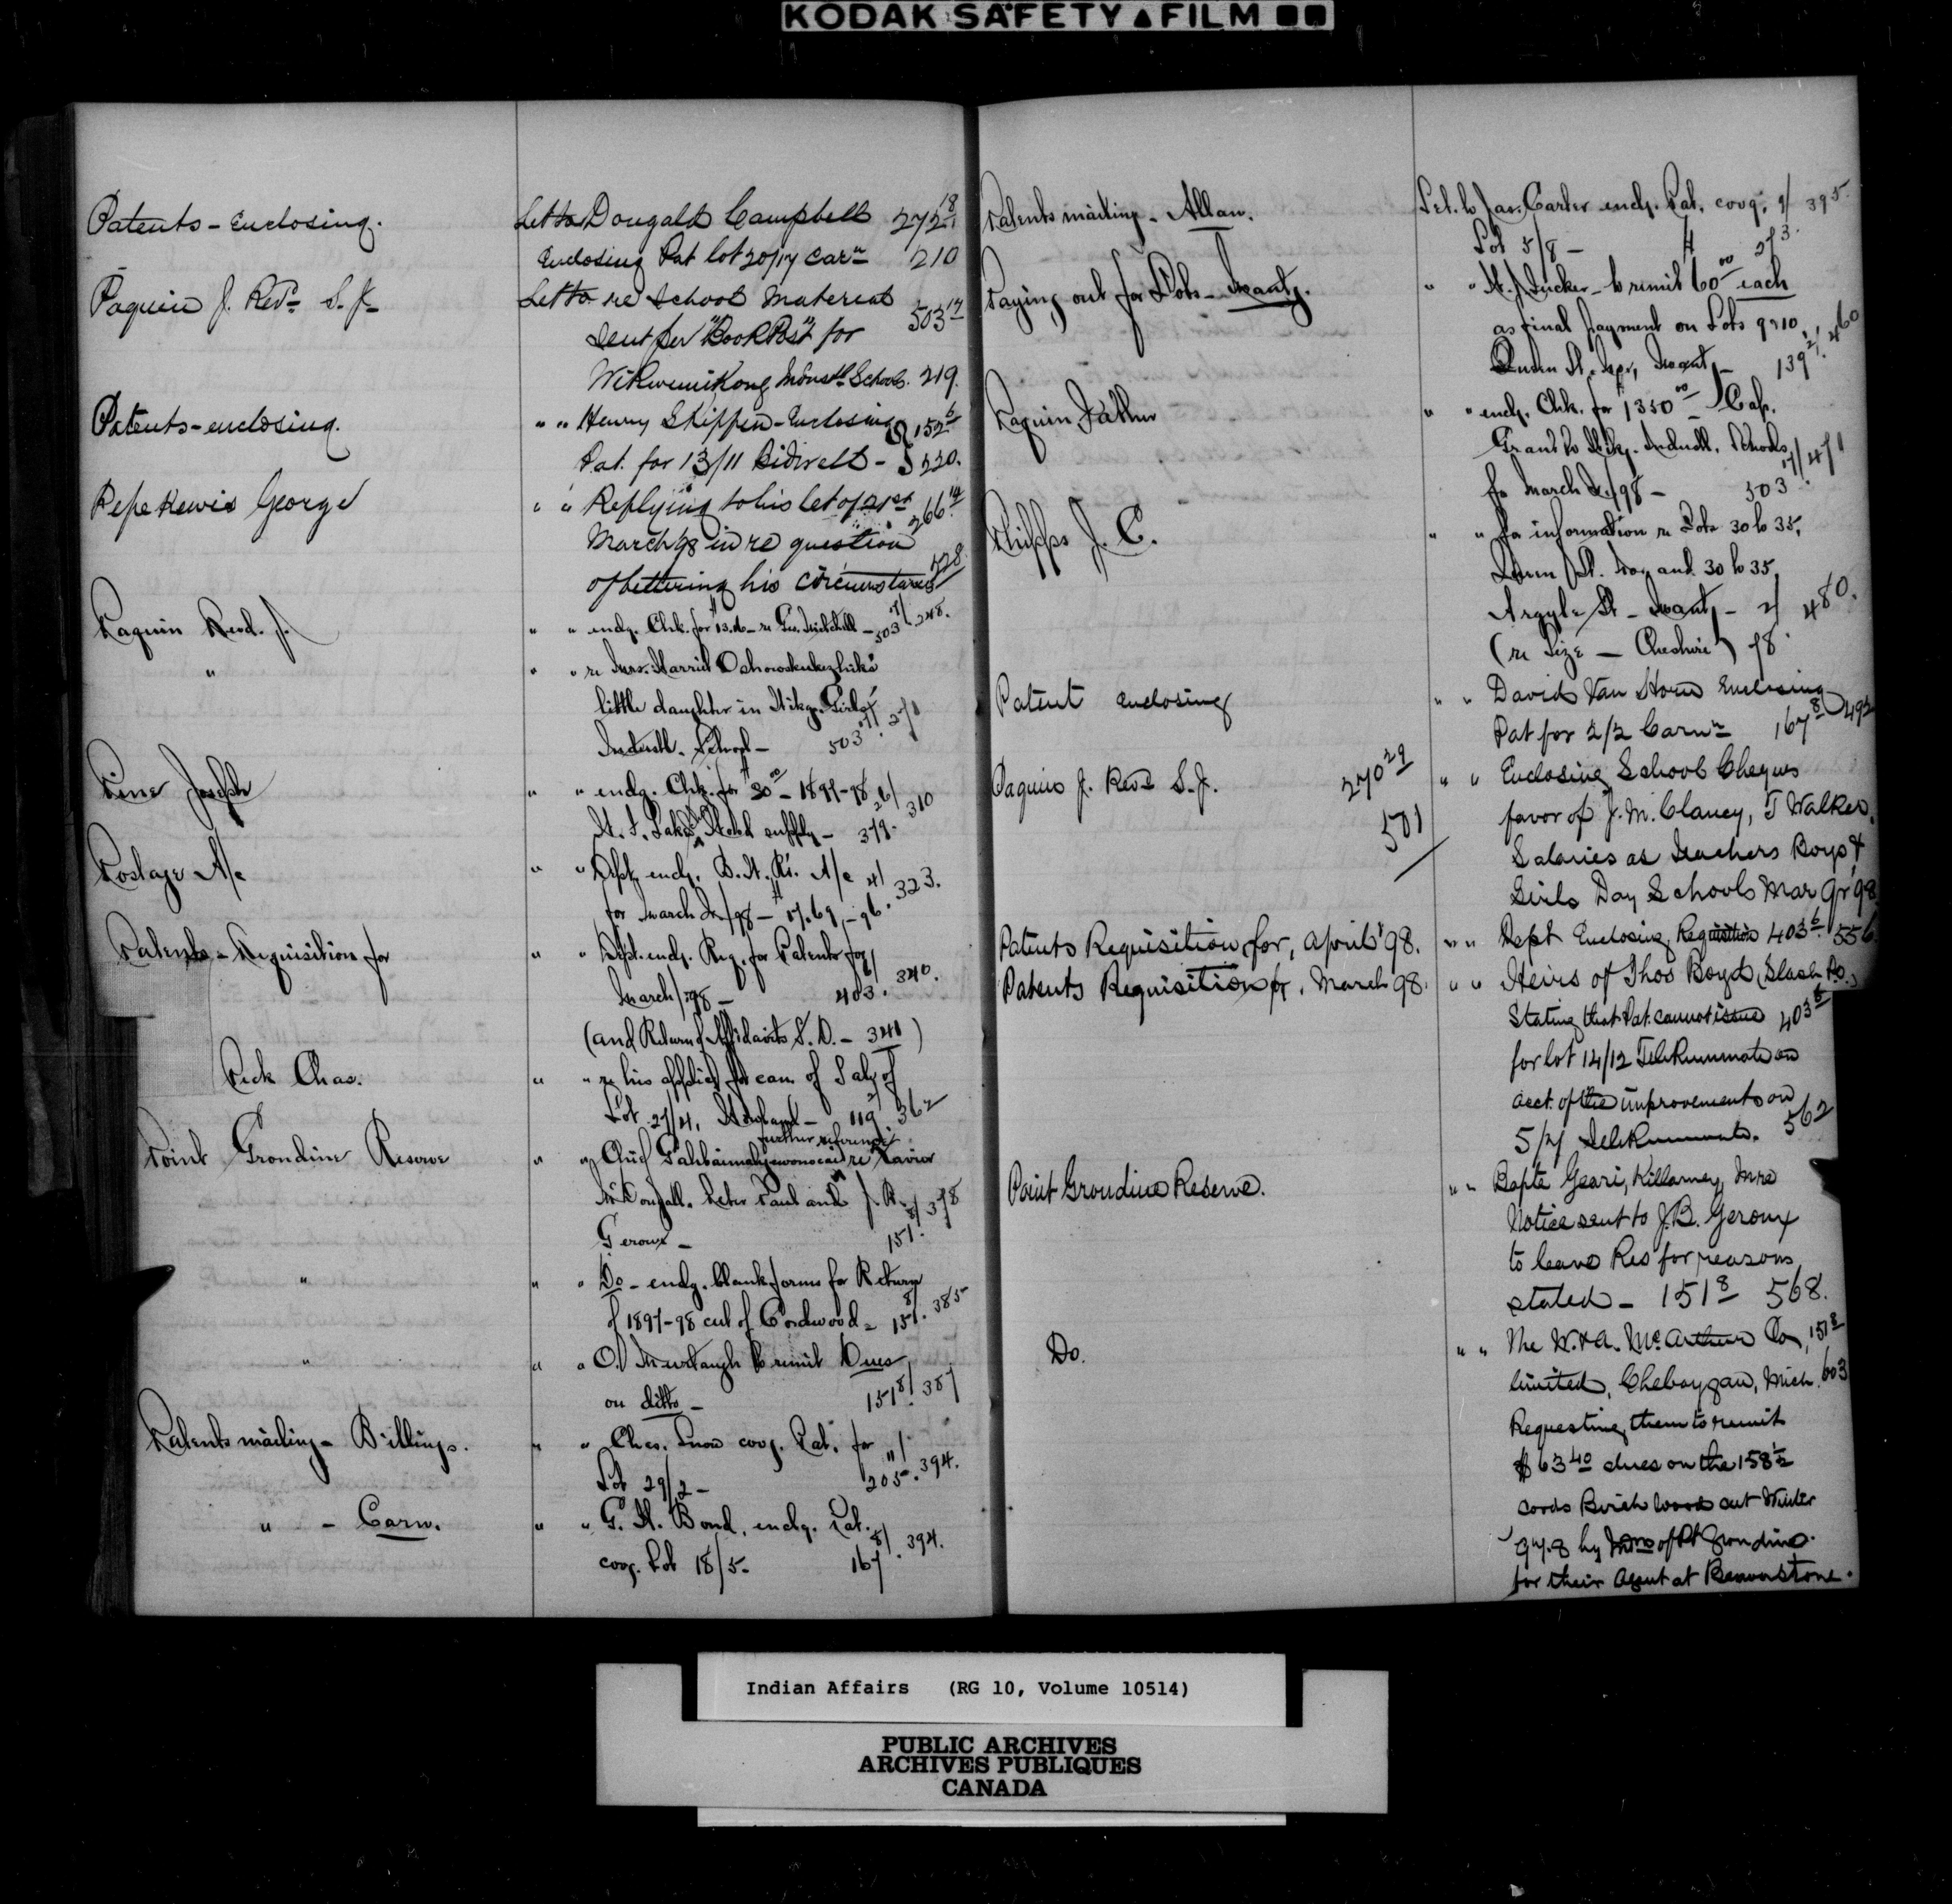 KODAK SAFETY FILM
Patents - Enclosing.
Let to Dougald Campbell 272 18
Enclosing Pat lot 20/14 Carn 210
Paquin J. Revd S.J.
Let to re School Material
sent per "Book Post" for 503 17
Wikwemikong Indust'l Schools. 219.
Patents - enclosing.
" " Henry Skippen - Enclosing 152 6
Pat. for 13/11 Bidwell - 220.
Pepekewis George
" " Replying to his let of 21st 266 14
March 98 in re question
of bettering his circumstances 228
Paquin Revd. J.
" " encg. Chk. for 13. - re Geo. Mitchell - 503 17/248.
"
" " re Mrs. Harriet
little daughter in Wikg. Girls'
Industl. School - 503 17/ 271
Pine Joseph
" " encg. Chk. for $20 00 - 1897-98
supply - 379. 26/310
Postage A/c
" " Dept. encg. A/c
for March Qr/98 - 17.69 - 96. 4/323.
Patents - Requisition for
" " Dept. encg. Req. for Patents for
March/98 - 403. 340.
(and Return of Affidavits S.D. - 341)
Peck Chas.
" " re his applicn for can. of Sale of
Lot 27/4, Howland - 119. 2/362
Point Grondine Reserve
" " Chief re Xavier
further reference
McDougall. Peter Paul and J.B.
Geroux - 151. 8/378
"
" " Do - encg. blank forms for Return
of 1897-98 cut of Cordwood - 151. 8/385
"
" " O. Murtaugh to remit Dues
on ditto - 151. 8/387
Patents mailing - Billings.
" " Ches. Snow covg. Pat. for
Lot 29/2 - 205. 11/394.
" - Carn.
" " G. H. Bond, encg. Pat.
covg. Lot 18/5 - 167 8/394.
Patents mailing - Allan.
Let. to Jas. Carter encg. Pat. covg. 9/395
Lot 5/8 - 273.
Paying out for Lots - Manty.
" " H. J. Tucker - to remit 60 00 each
as final payment on Lots 9 & 10
Queen St. Manty - 139. 21/460
Paquin Father
" " encg. Chk. for $1350 00 Cap.
Grant to Wikg. Industl. Schools
for March Qr/98 - 503 17/471
Phipps J. C.
" " for information re Lots 30 to 35,
Queen St. and 30 to 35
Argyle St - Manty - 2/480.
(re Size - Cheshire) 78.
Patent enclosing
" " David Van Horn Enclosing
Pat for 2/2 Carn 167 8 492
Paquin J. Revd S.J. 270 29
501
" " Enclosing School Cheques
favor of J. M. Clancy, T Walker,
Salaries as Teachers Boys &
Girls Day Schools Mar Qr 98
Patents Requisition for, April '98.
" " Dept Enclosing Requisition 403 6 556
Patents Requisition for, March 98.
" " Heirs of Thos Boyd (Slash P.O.)
Stating that Pat. cannot issue 403 6
for lot 14/12 Tehkummah on
acct. of the improvements on
5/7 Tehkummah. 562
Point Grondine Reserve.
" " Bapte Geari, Killarney, in re
Notice sent to J.B. Geroux
to leave Res for reasons
stated - 151 8 568.
Do.
" " The W. & A. McArthur Co, 151 8
limited, Cheboygan, Mich. 603
Requesting them to remit
$63 40 dues on the 158 1/2
cords Birch wood cut Winter
97.8 by Inns of Pt Grondine
for their Agent at Beaverstone.
Indian Affairs (RG 10, Volume 10514)
PUBLIC ARCHIVES
ARCHIVES PUBLIQUES
CANADA